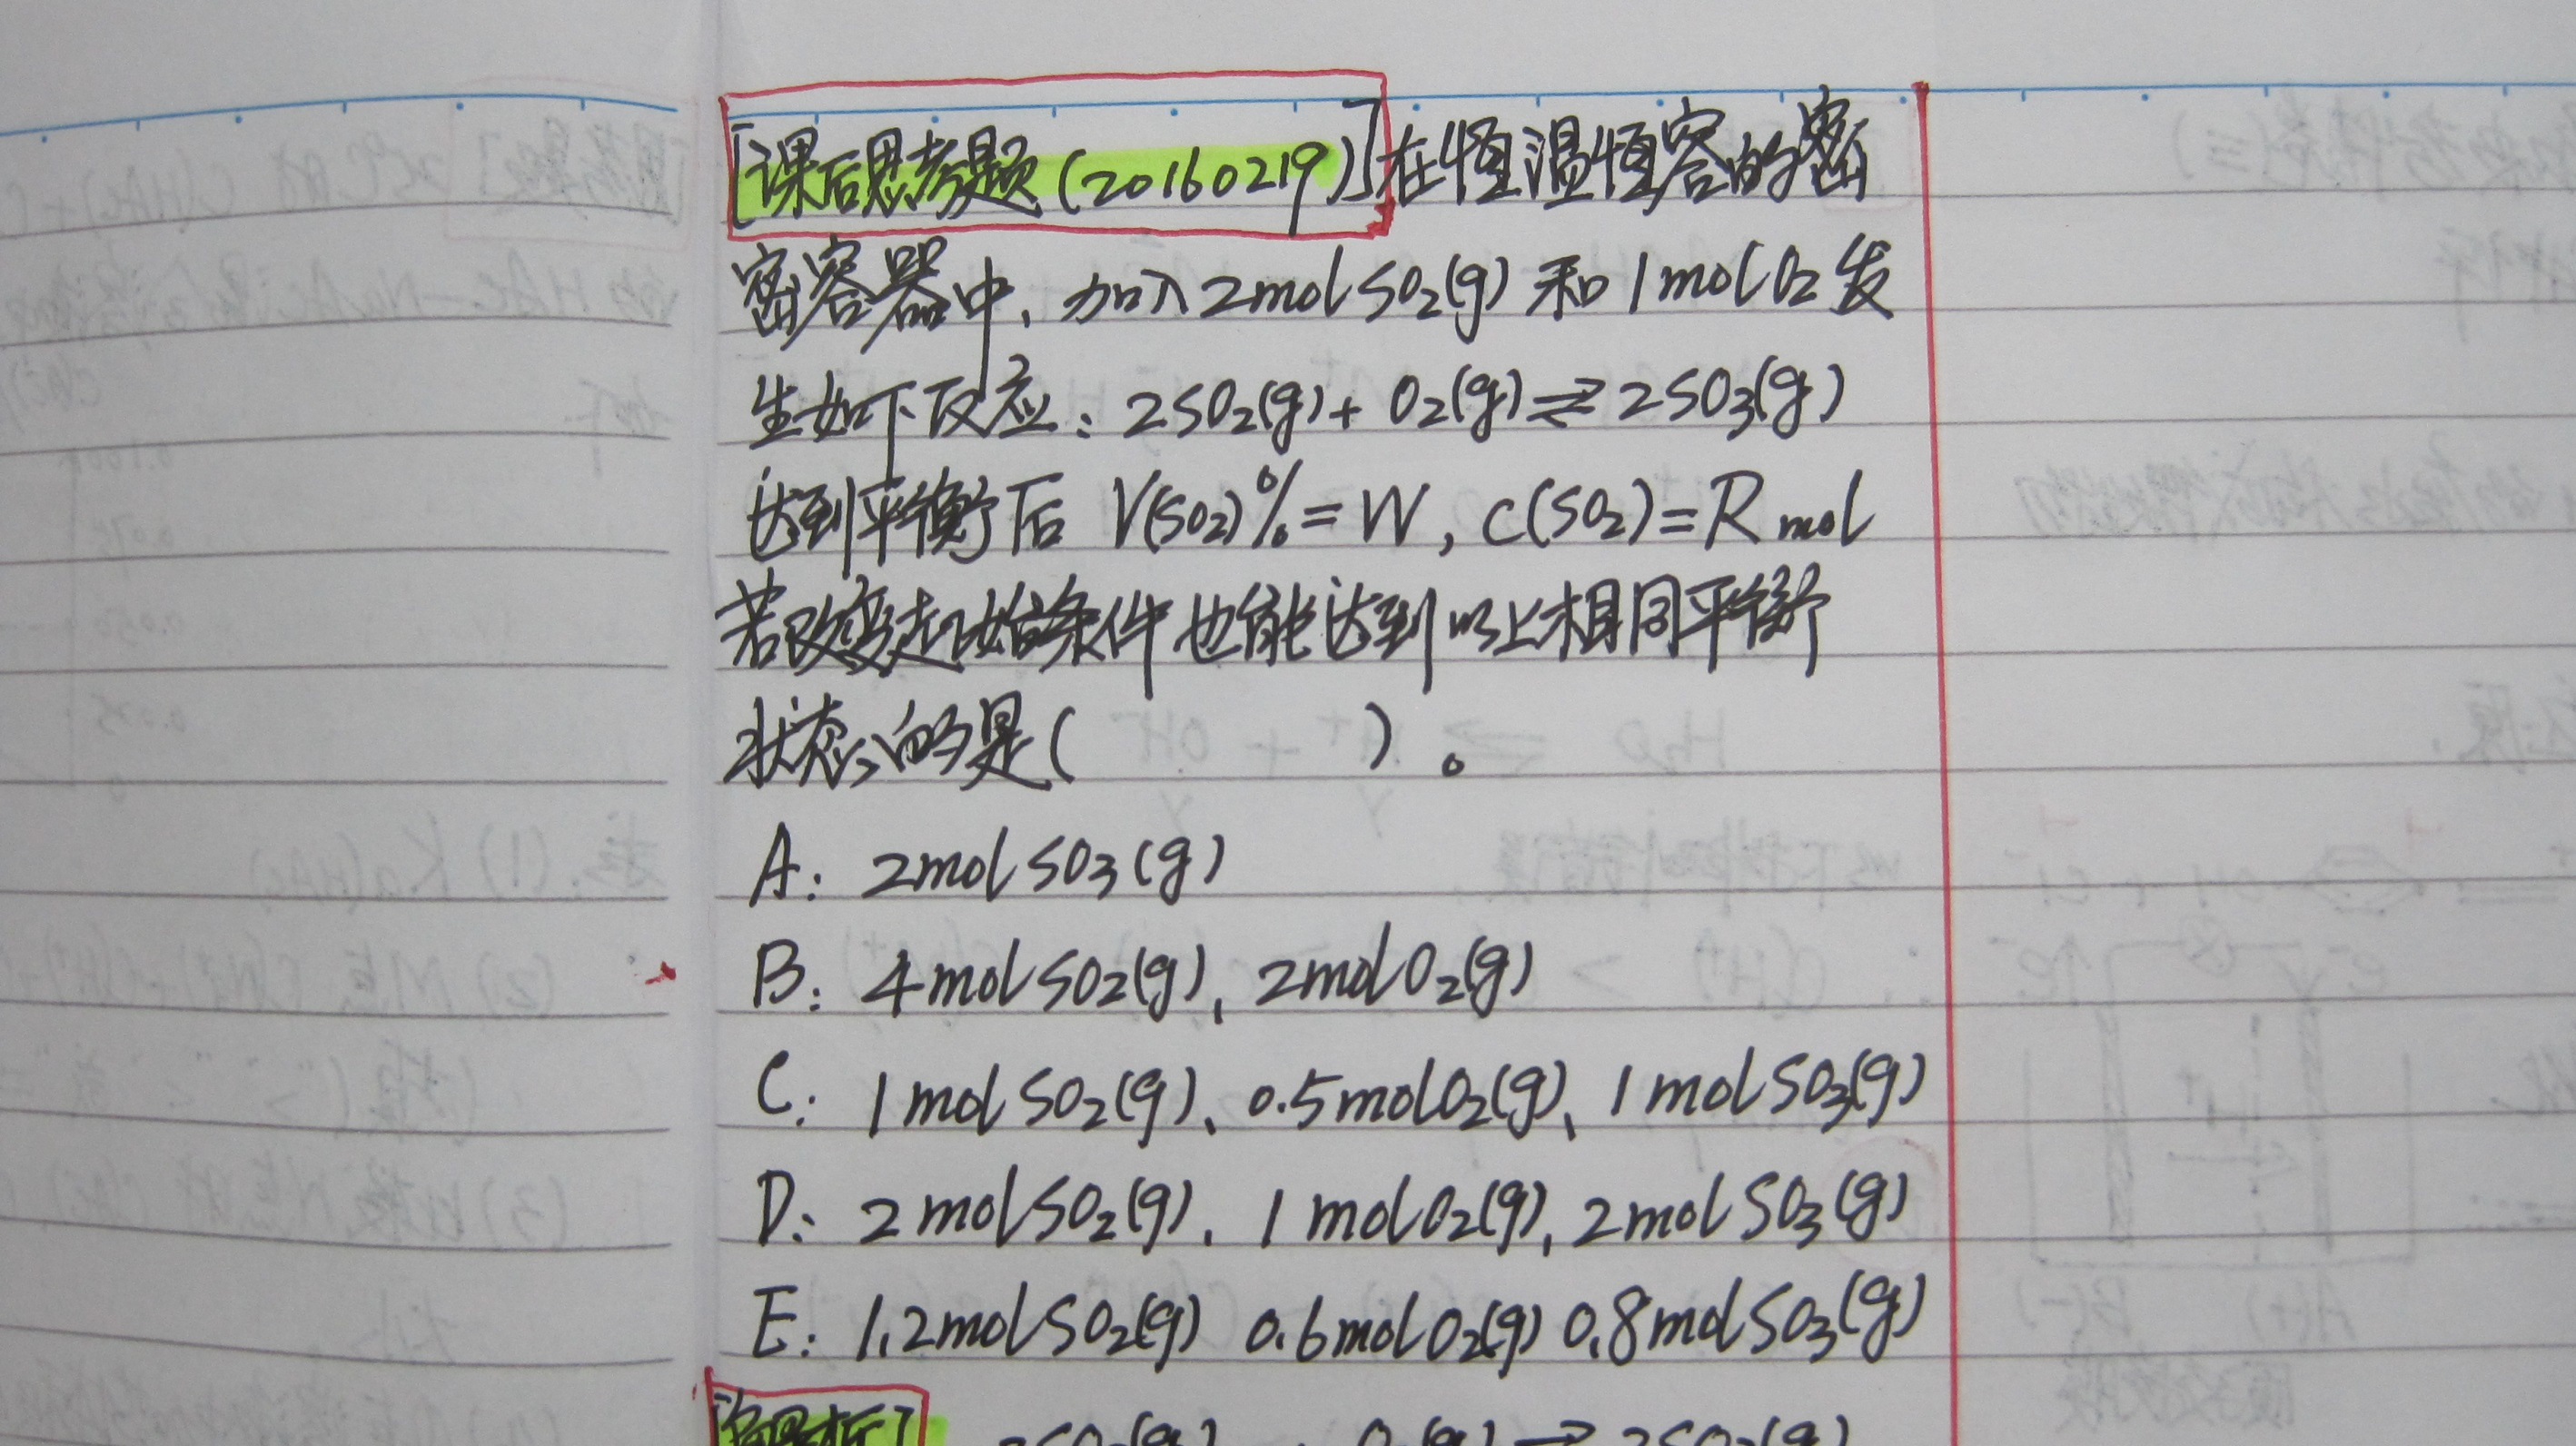 [课后思考题(20160219)]在恒温恒容的密
密容器中，加入2molSO₂(g)和1molO₂发
生如下反应：2SO₂(g)+O₂(g)⇌2SO₃(g)
达到平衡后 V(SO₂)%=W，C(SO₂)=Rmol
若改变起始条件也能达到以上相同平衡
状态的是( )。
A：2molSO₃(g)
B：4molSO₂(g)、2molO₂(g)
C：1molSO₂(g)、0.5molO₂(g)、1molSO₃(g)
D：2molSO₂(g)、1molO₂(g)，2molSO₃(g)
E：1.2molSO₂(g) 0.6molO₂(g) 0.8molSO₃(g)